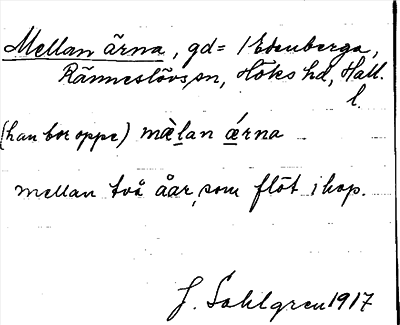 Mellan ärna, gd= i Edenberga,
Ränneslövs sn, Höks hd, Hall.
l.
(han bor oppe) mæ̀lan ǽrna
mellan två åar, som flöt ihop.
J. Sahlgren 1917